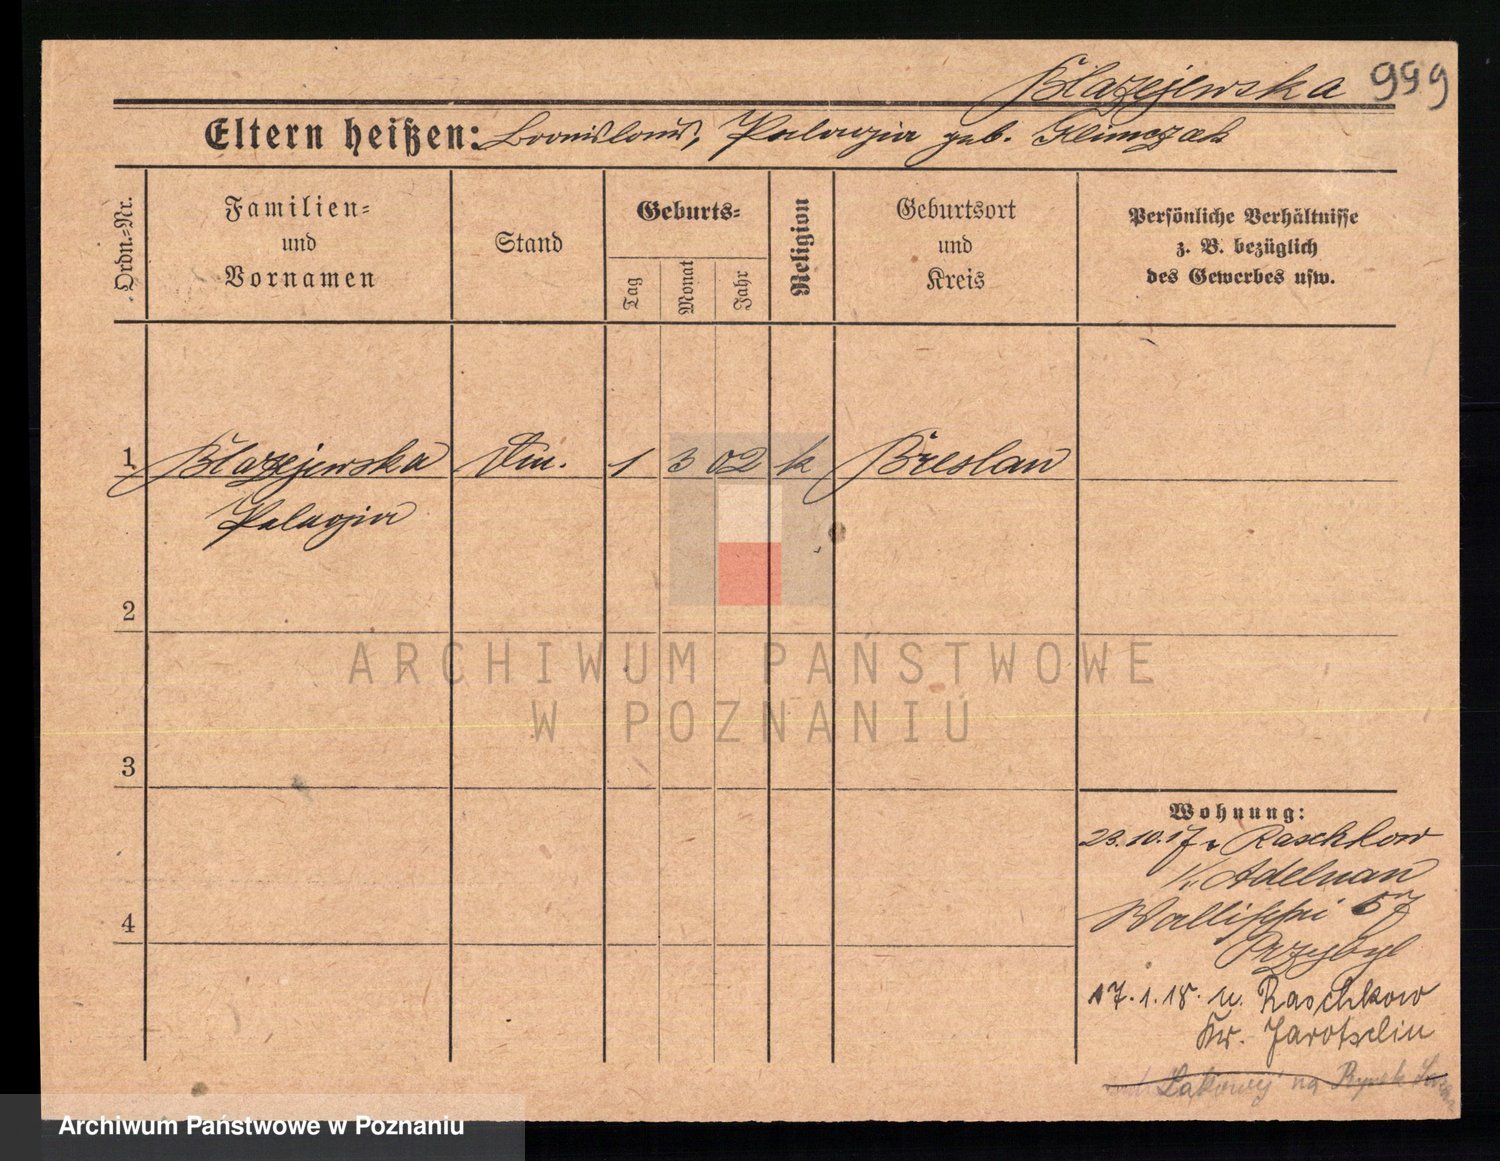 Błazejewska 999
Eltern heißen: Bronislaus, Pelagia geb. Klimczak
Ordn.-Nr.
Familien-
und
Vornamen
Stand
Geburts-
Tag
Monat
Jahr
Religion
Geburtsort
und
Kreis
Persönliche Verhältnisse
z. B. bezüglich
des Gewerbes usw.
1 Błazejewska 1 3 02 k Breslau
Pelagia
2
3
4
Wohnung:
23.10.17 v Raschkow
K. Adelnau
Wallischei 57
Przybyl
17.1.18. n. Raschkow
Kr. Jarotschin
Łąkowej na Rynek
ARCHIWUM PAŃSTWOWE
W POZNANIU
Archiwum Państwowe w Poznaniu